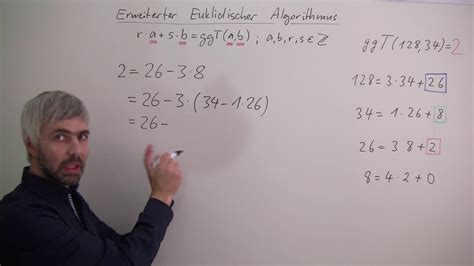 Erweiterter Euklidischer Algorithmus
r·a + s·b = ggT(a,b) ; a,b,r,s ∈ ℤ
2 = 26 – 3·8
= 26 – 3·(34 – 1·26)
= 26 –
ggT(128,34) = 2
128 = 3·34 + 26
34 = 1·26 + 8
26 = 3·8 + 2
8 = 4·2 + 0